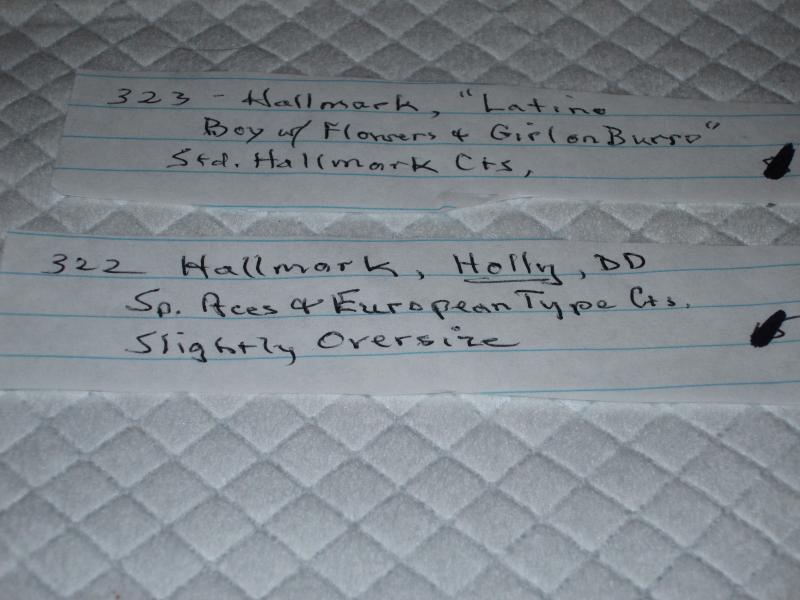 323 - Hallmark, "Latino
Boy w/ Flowers & Girl on Burro"
Std. Hallmark Cts,
322 Hallmark, Holly, DD
Sp. Aces & European Type Cts.
Slightly Oversize